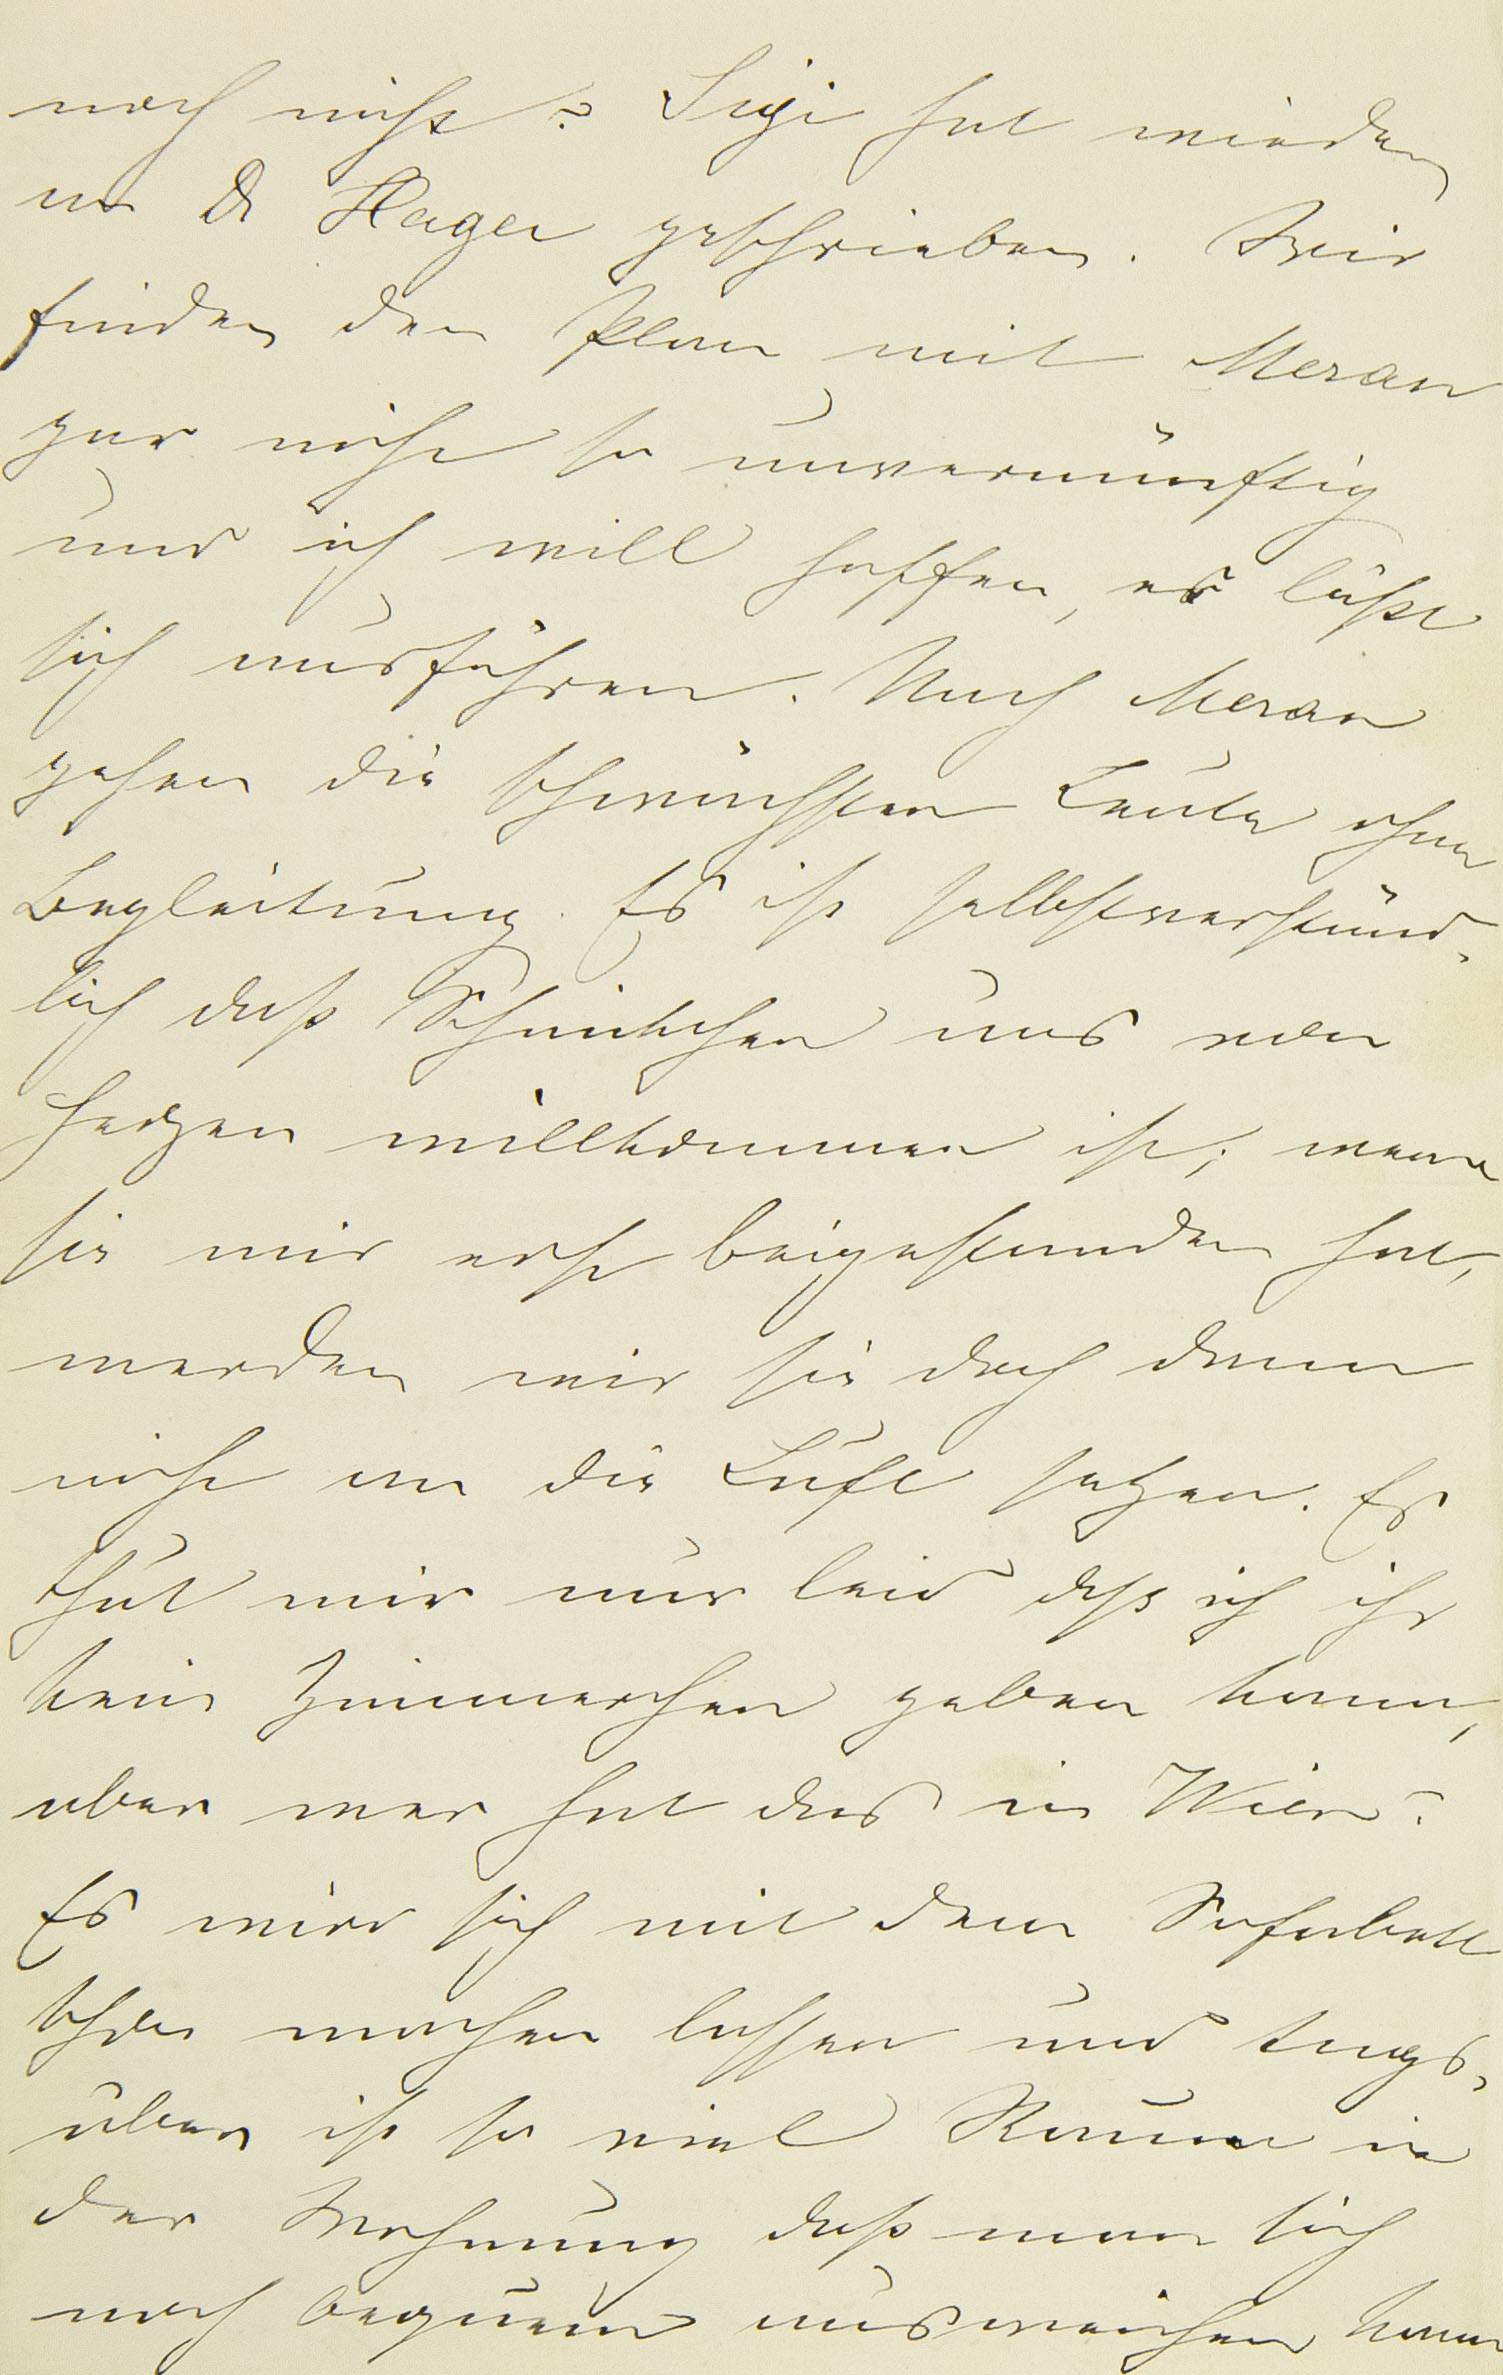 noch nicht? Sigi hat wieder
an Dr Hager geschrieben. Wir
finden den Plan mit Meran
gar nicht so unvernünftig
und ich will hoffen, er läßt
sich ausführen. Nach Meran
gehen die schwächsten Leute ohne
Begleitung. Es ist selbstverständ-
lich daß Schnitchen uns von
Herzen willkommen ist; wenn
sie mir erst beigestanden hat,
werden wir sie doch dann
nicht an die Luft setzen. Es
thut mir nur leid daß ich ihr
kein Zimmerchen geben kann,
aber wer hat das in Wien?
Es wird sich mit dem Sofabett
schon machen lassen und tags-
über ist so viel Raum in
der Wohnung daß man sich
noch bequem ausweichen kann